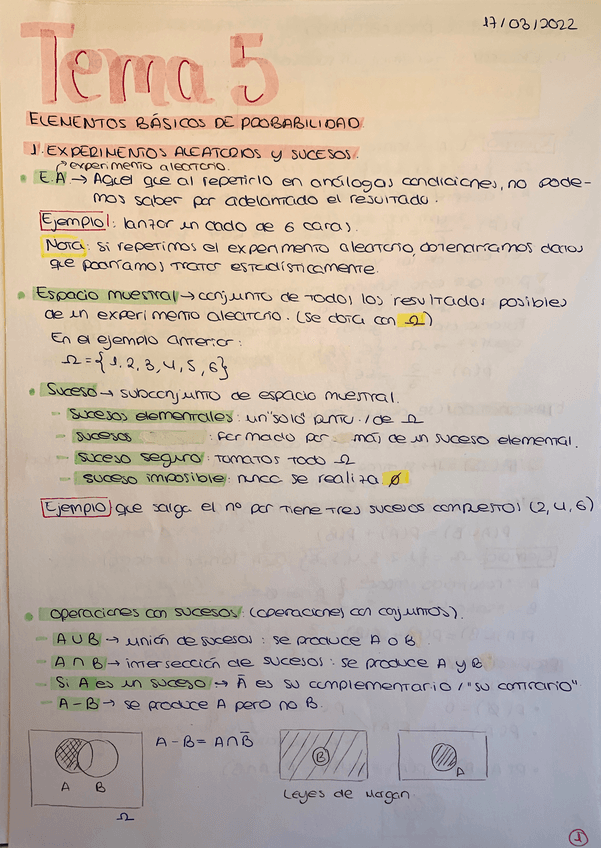 17/03/2022
Tema 5
ELEMENTOS BÁSICOS DE PROBABILIDAD
1. EXPERIMENTOS ALEATORIOS Y SUCESOS.
experimento aleatorio.
• E.A → Aquel que al repetirlo en análogas condiciones, no pode-
mos saber por adelantado el resultado.
Ejemplo: lanzar un dado de 6 caras.
Nota: si repetimos el experimento aleatorio, obtendríamos datos
que podríamos tratar estadísticamente.
• Espacio muestral → conjunto de todos los resultados posibles
de un experimento aleatorio. (se dota con Ω)
En el ejemplo anterior:
Ω = {1, 2, 3, 4, 5, 6}
• Suceso → subconjunto de espacio muestral.
- Sucesos elementales: un "solo" punto · / de Ω
- sucesos : formado por más de un suceso elemental.
- suceso seguro: tomamos todo Ω
- suceso imposible: nunca se realiza. ∅
Ejemplo que salga el nº par tiene tres sucesos compuestos (2, 4, 6)
• operaciones con sucesos: (operaciones con conjuntos).
- A ∪ B → unión de sucesos: se produce A o B.
- A ∩ B → intersección de sucesos: se produce A y B.
- Si A es un suceso → Ā es su complementario / "su contrario"
- A - B → se produce A pero no B.
A - B = A ∩ B̄
A B
Ω
B
A
Leyes de Morgan
1